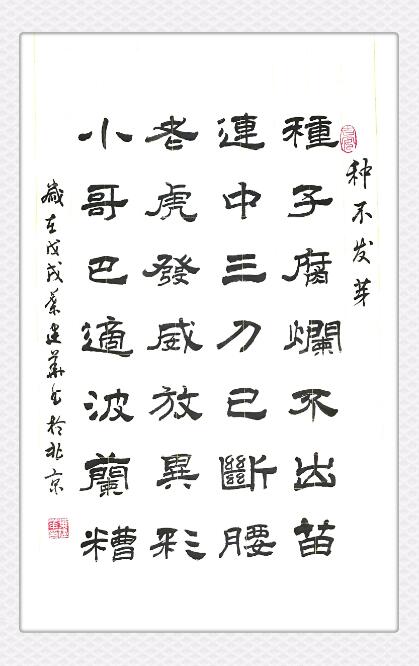 种不发芽
種子腐爛不出苗
連中三刀已斷腰
老虎發威放異彩
小哥巴適波蘭糟
歲在戊戌葉建華书於北京